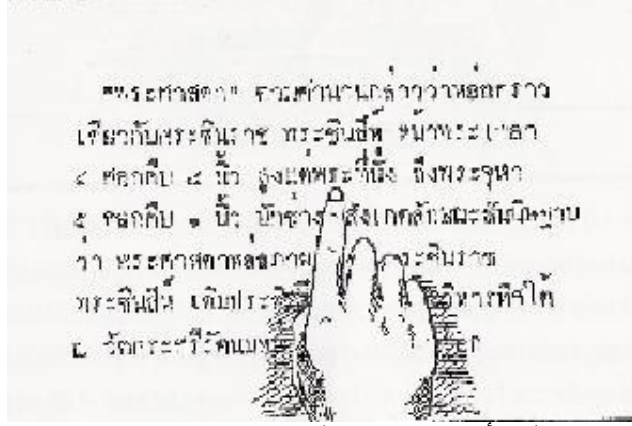 "พระศาสดา" ตามตำนานกล่าวว่าหล่อคราว
เดียวกับพระชินราช พระชินสีห์ หน้าพระเพลา
๔ ศอกคืบ ๘ นิ้ว สูงแต่พระที่นั่ง ถึงพระจุฬา
๕ ศอกคืบ ๑ นิ้ว นักช่างสังเกตลักษณะสันนิษฐาน
ว่า พระศาสดาหล่อภาย พระชินราช
พระชินสีห์ เดิมประ วิหารทิศใต้
ณ วัดพระศรีรัตนมห